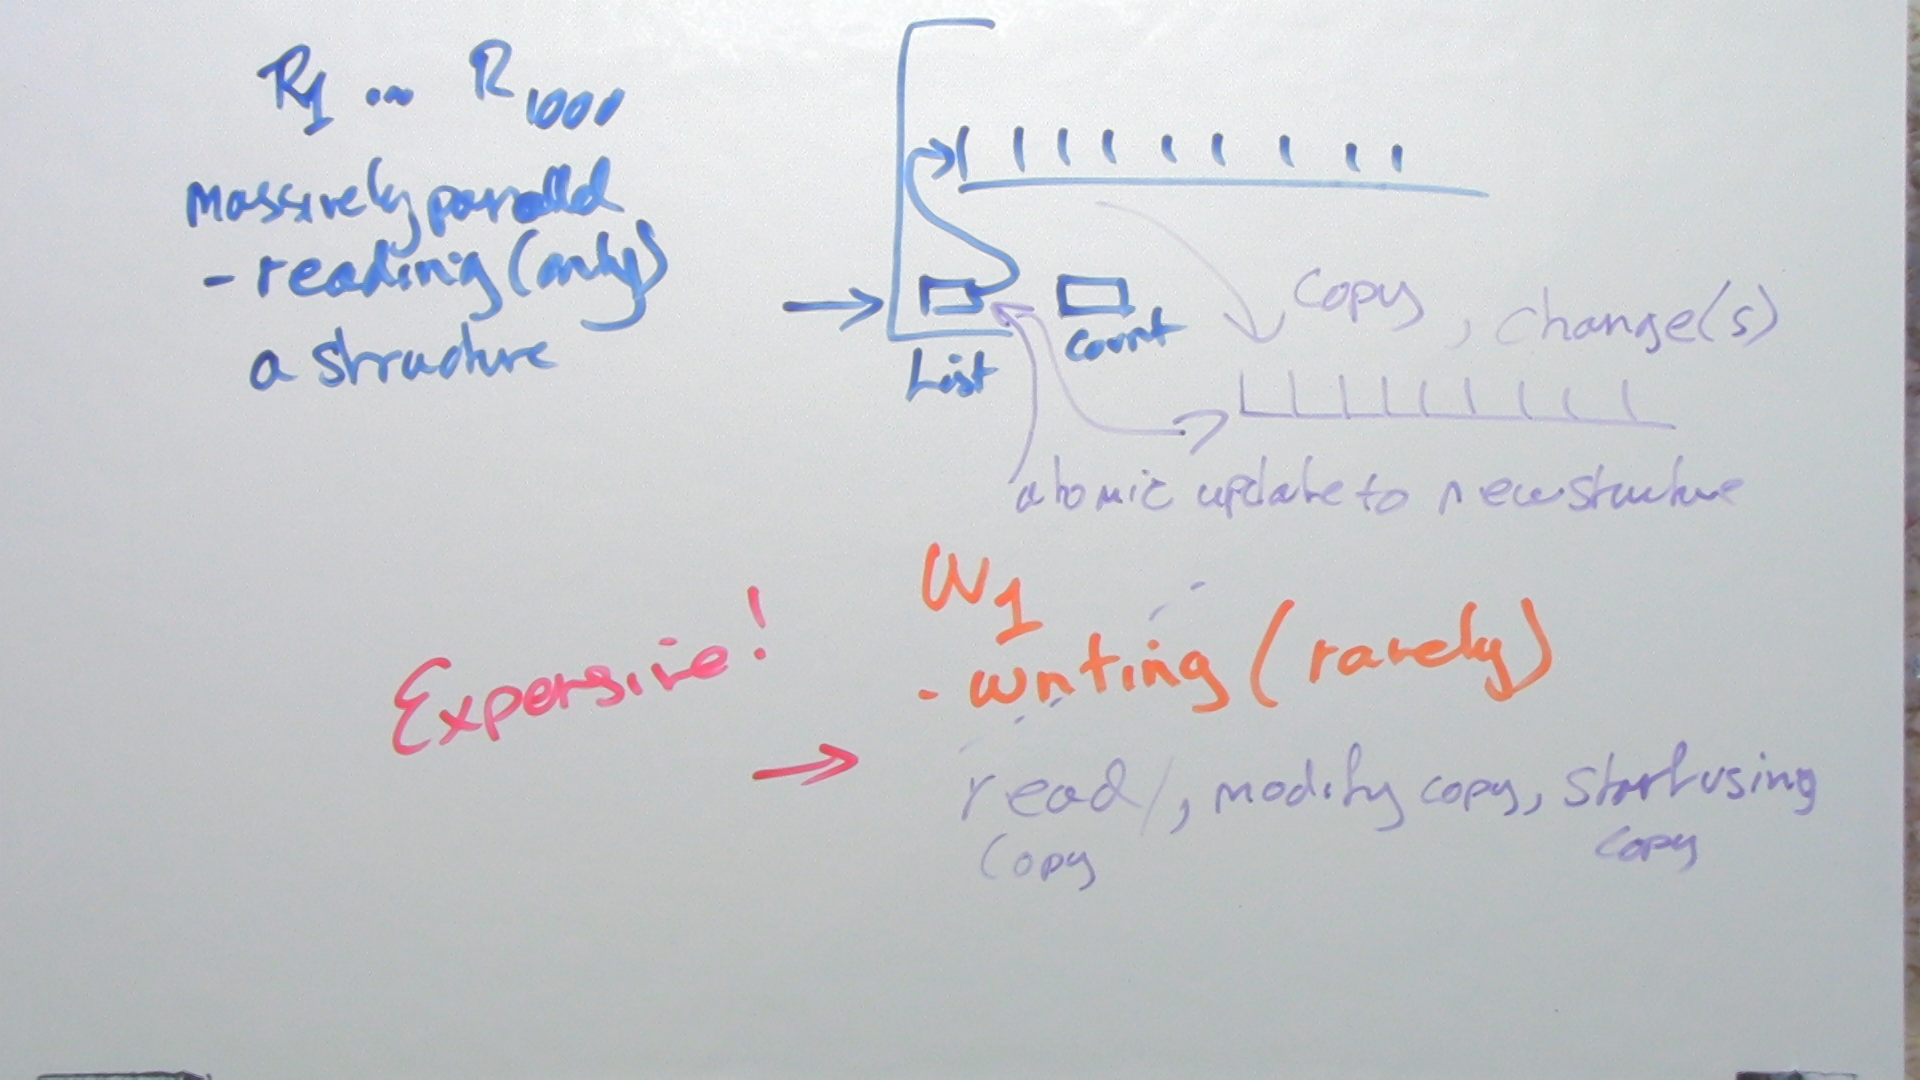 R1 ... R1000
Massively parallel
- reading (only)
a structure
List
Count
Copy, change(s)
atomic update to new structure
Expensive!
W1
- writing (rarely)
read/, modify copy, start using
copy
copy